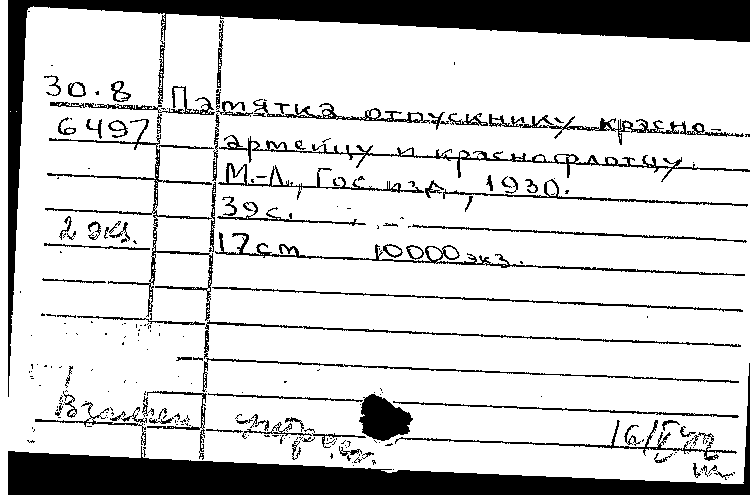 30.8 Памятка отпускнику красно-
6497 армейцу и краснофлотцу.
М.-Л., Гос. изд., 1930.
39 с.
2 экз. 17 см 10000 экз.
Взамен